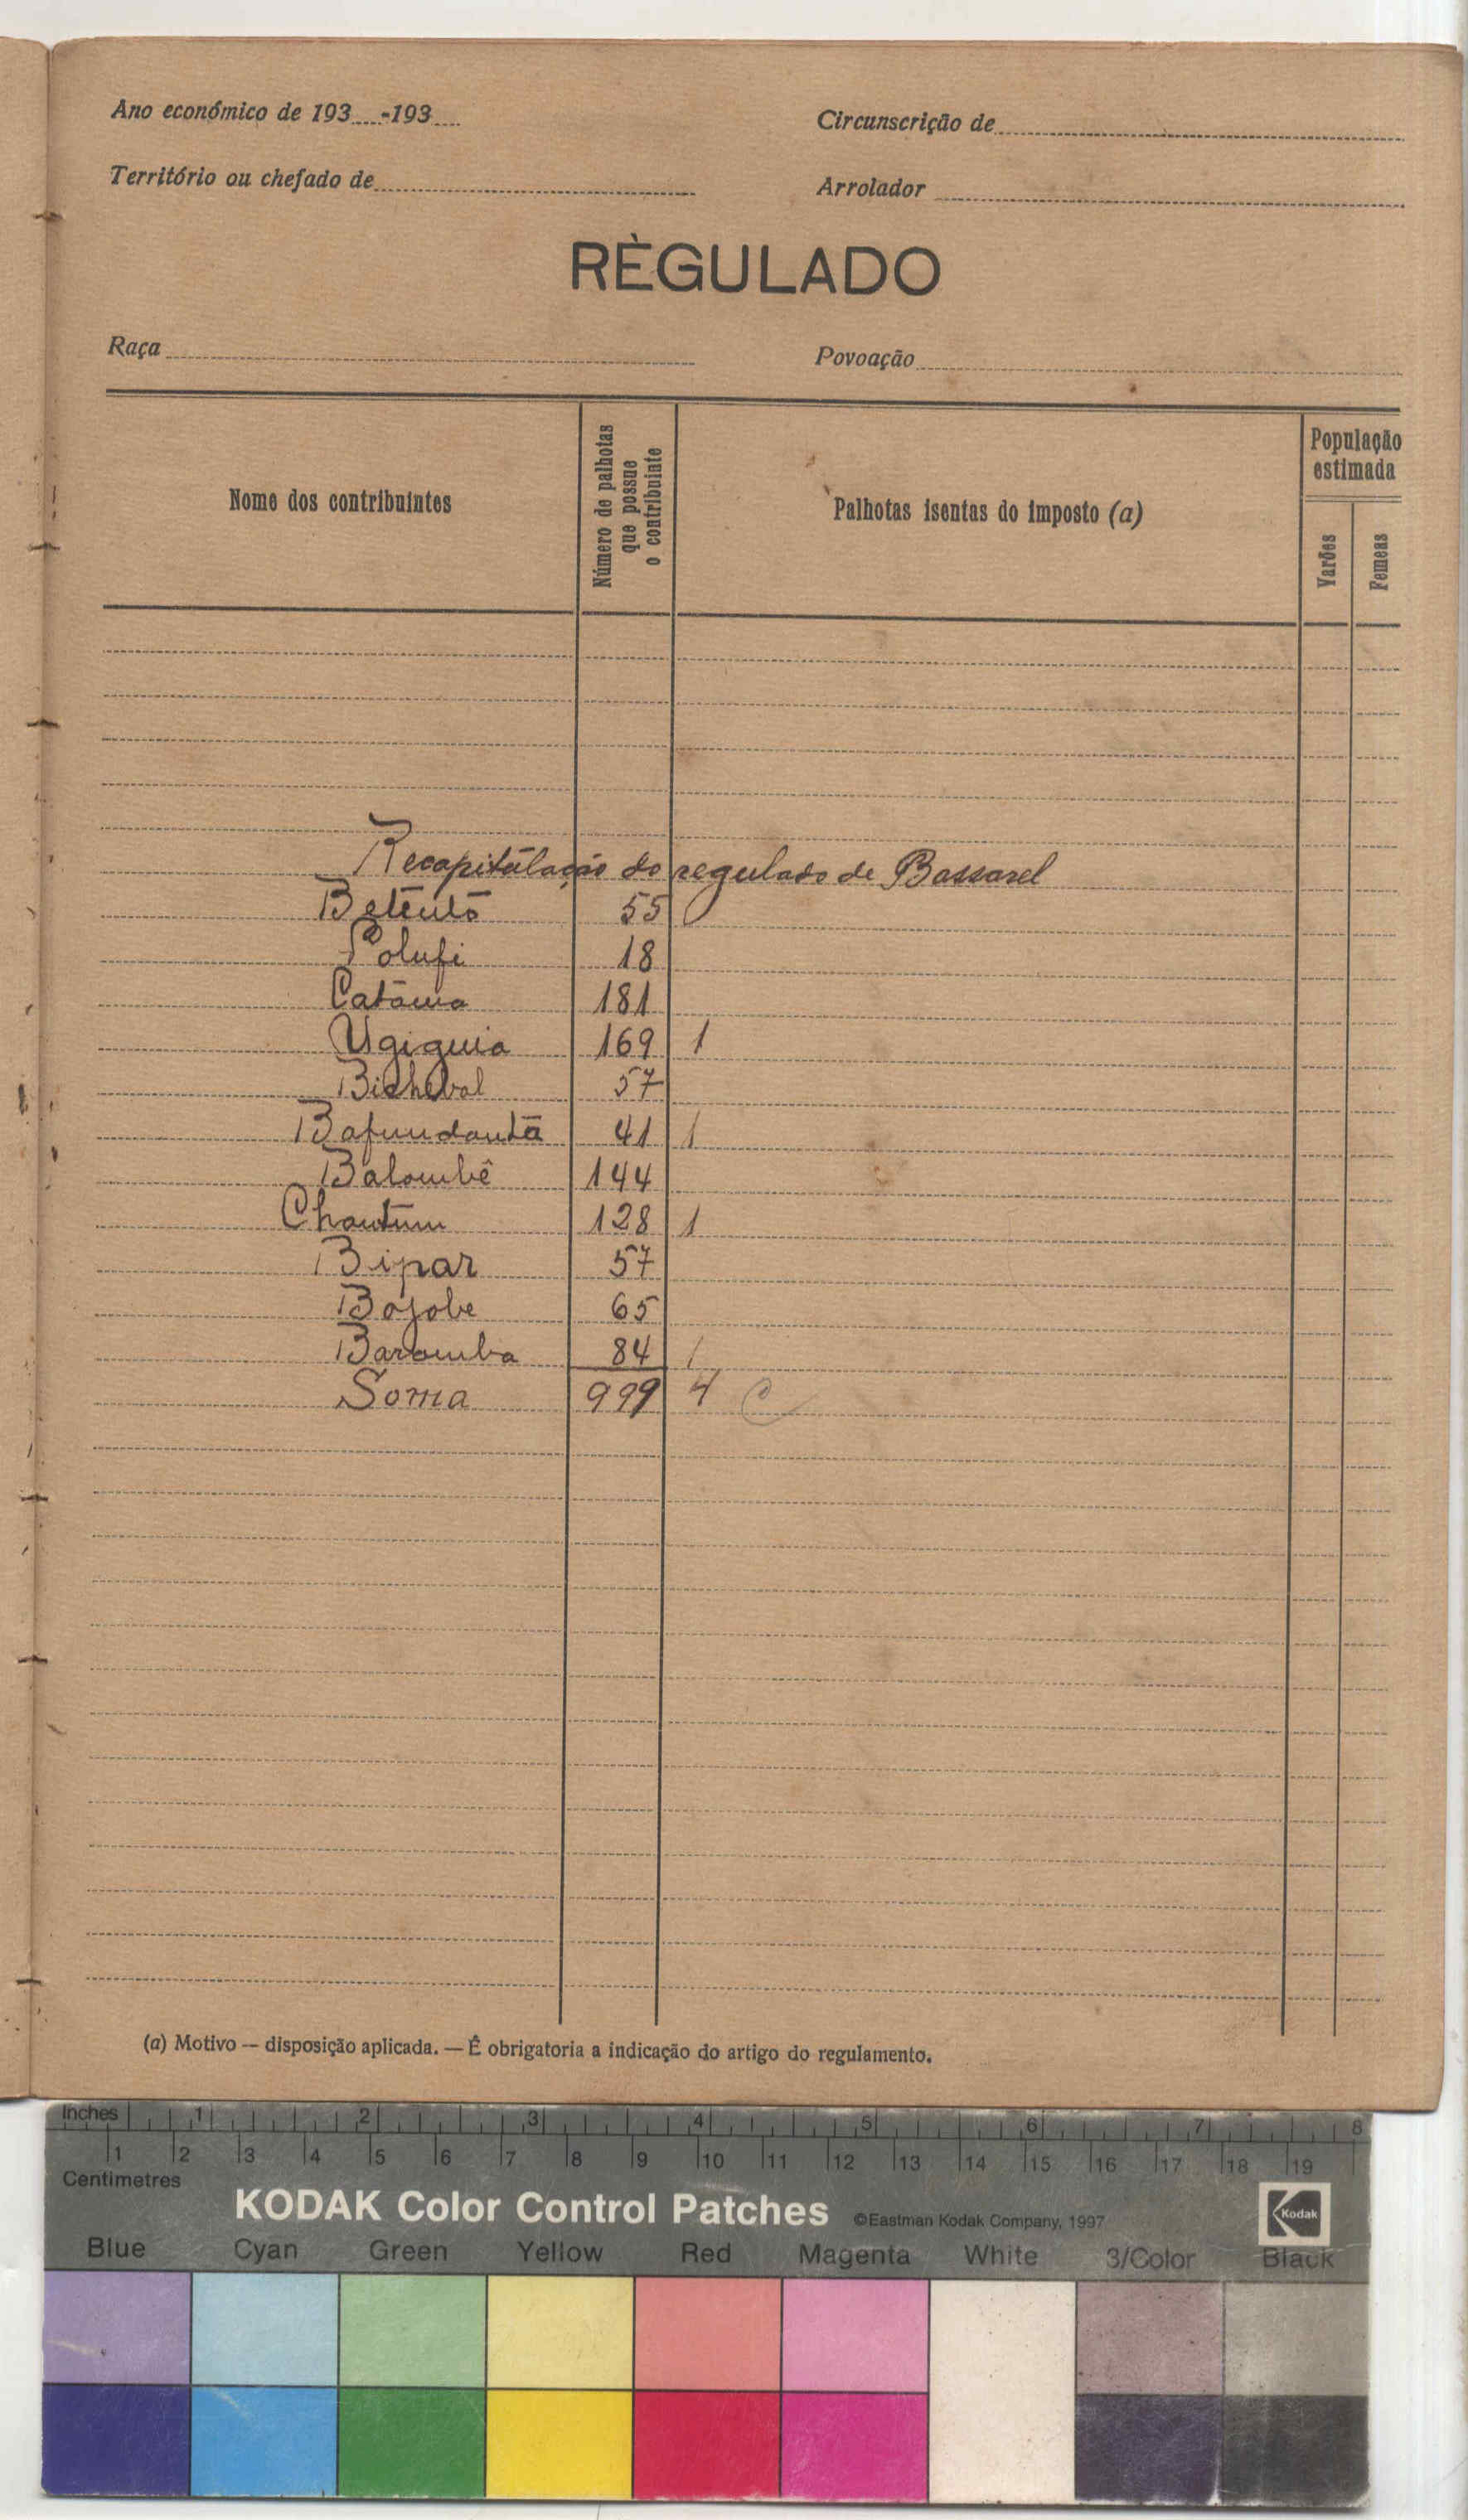 Ano económico de 193....-193....
Circunscrição de
Território ou chefado de
Arrolador
RÈGULADO
Raça
Povoação
Nome dos contribuintes
Número de palhotas
que possue
o contribuinte
Palhotas isentas do imposto (a)
População
estimada
Varões
Femeas
Recapitulação do regulado de Bassarel
Betentó 55
Polufi 18
Catama 181
Ugiguia 169 1
Bicheval 57
Bafundantã 41 1
Balombê 144
Chantum 128 1
Bipar 57
Bajobe 65
Baromba 84 1
Soma 999 4 C
(a) Motivo — disposição aplicada. — É obrigatoria a indicação do artigo do regulamento.
Inches 1 2 3 4 5 6 7 8
1 2 3 4 5 6 7 8 9 10 11 12 13 14 15 16 17 18 19
Centimetres
KODAK Color Control Patches ©Eastman Kodak Company, 1997 Kodak
Blue Cyan Green Yellow Red Magenta White 3/Color Black